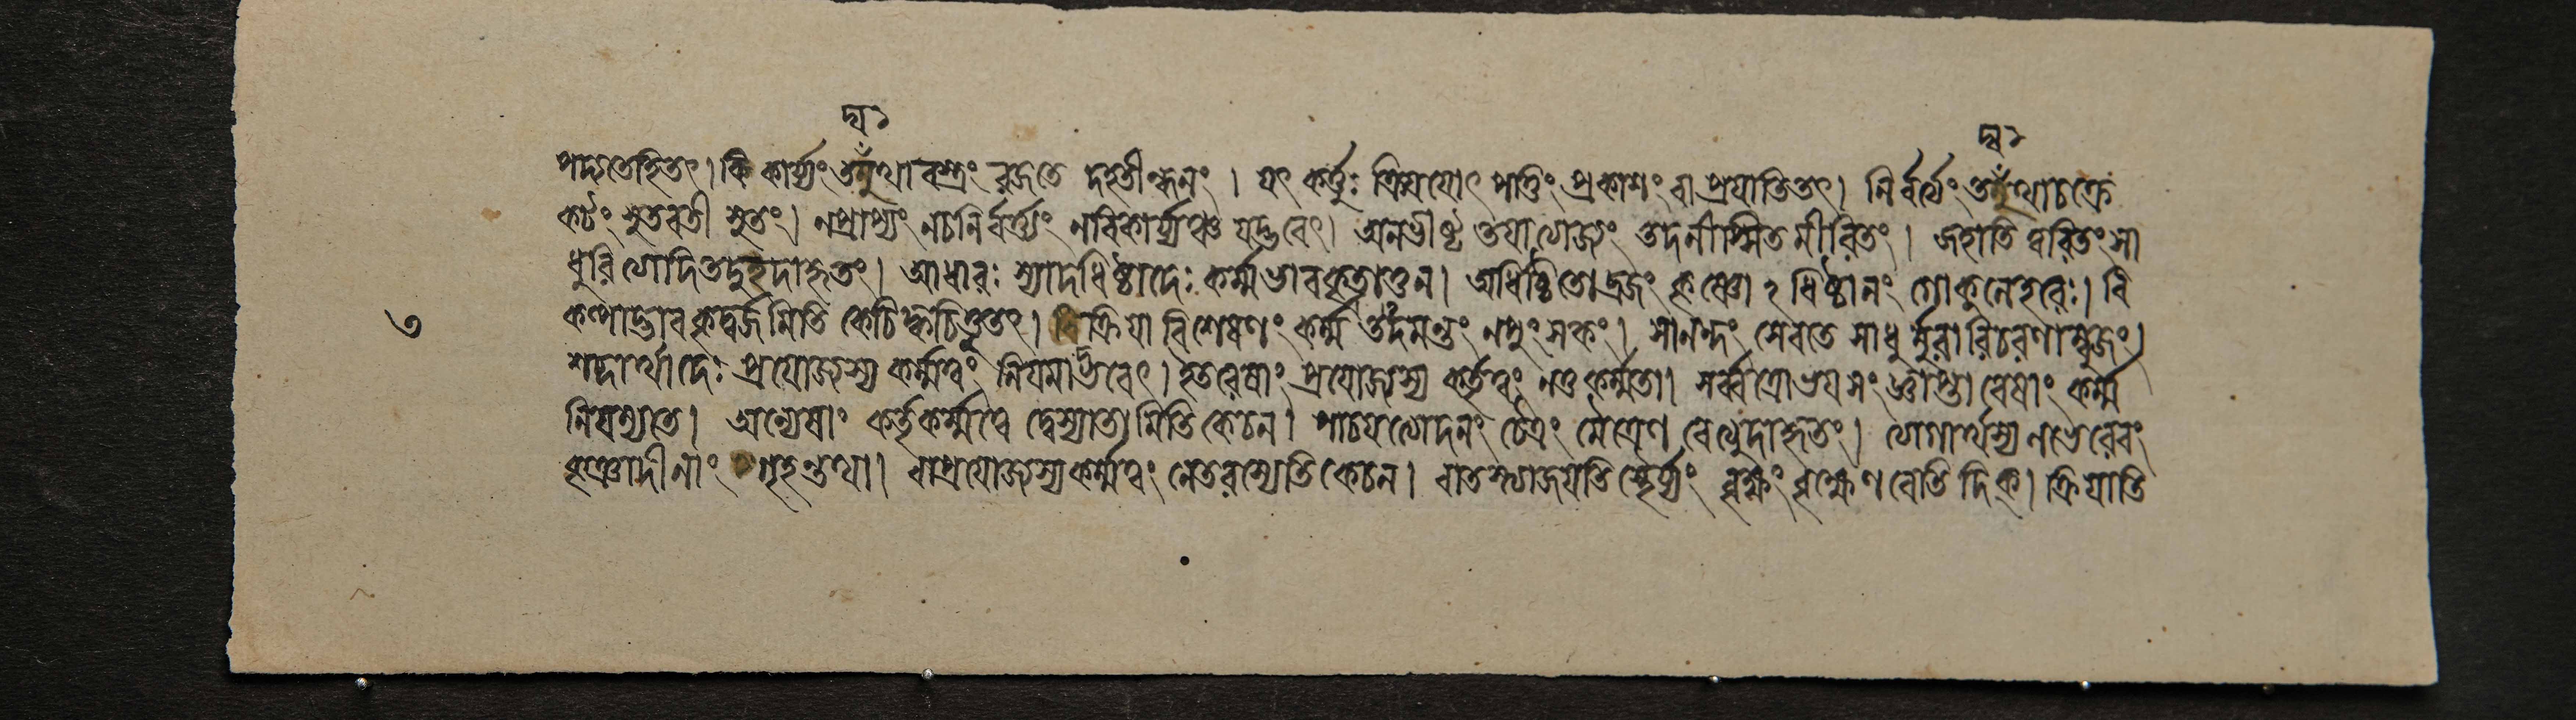 দ্যঃ
দ্বঃ
পদ্যতেহিতৎ। বিকার্য্যং তদ্যথা বস্ত্রং রজতে দহতীন্ধনং । যৎ কর্ত্তুঃ ক্রিয়য়োৎপত্তিং প্রকাশং বা প্রযাতি তৎ। নির্ব্বর্ত্ত্যং তদ্যথা চক্রে
কটং সুতবতী সুতং। ন প্রাপ্যং ন চ নির্ব্বর্ত্ত্যং ন বিকার্য্যঞ্চ যদ্ভবেৎ। অনভীষ্টং তয়া যোজ্যং তদনীপ্সিতমীরিতং । জহাতি দ্বরিতং সা
ধুরিথোদিতদুহদাহৃতং। আধারঃ স্যাদধিষ্ঠাদেঃ কর্ম্ম ভাবকৃতা তু ন। অধিষ্ঠিতো ব্রজং কৃষ্ণো ঽধিষ্ঠানং গোকুলে হরেঃ। বি
কল্পাদ্ভাবকৃদ্বর্জমিতি কেচিৎ ক্বচিত্তু তৎ। ক্রিয়া বিশেষণং কর্ম্ম তদমন্তং নপুংসকং। সানন্দং সেবতে সাধুর্মুরারিচরণাম্বুজং।
শব্দার্থাদেঃ প্রযোজ্যস্য কর্ম্মত্বং নিয়মাদ্ভবেৎ। ইতরেষাং প্রযোজ্যস্য কর্তৃত্বং ন তু কর্ম্মতা। সর্ব্বত্রোভয়সংজ্ঞাপ্তা বেষাং কর্ম্ম
নিয়ম্যতে। অন্যেষাং কর্তৃকর্ম্মত্বে দ্বে স্যাতামিতি কেচন। পাচয়ত্যোদনং চৈত্রং মৈত্রেণ বেত্যুদাহৃতং। যোগার্থস্য ণভেরেবং
হৃঞাদীনাং গৃহন্তথা। বা প্রযোজ্যস্য কর্ম্মত্বং নেতরস্যেতি কেচন। বা তস্যাজয়তি স্থৈর্য্যং বৃক্ষং বৃক্ষেণ বেতি দিক্। ক্রিয়াতি
৩